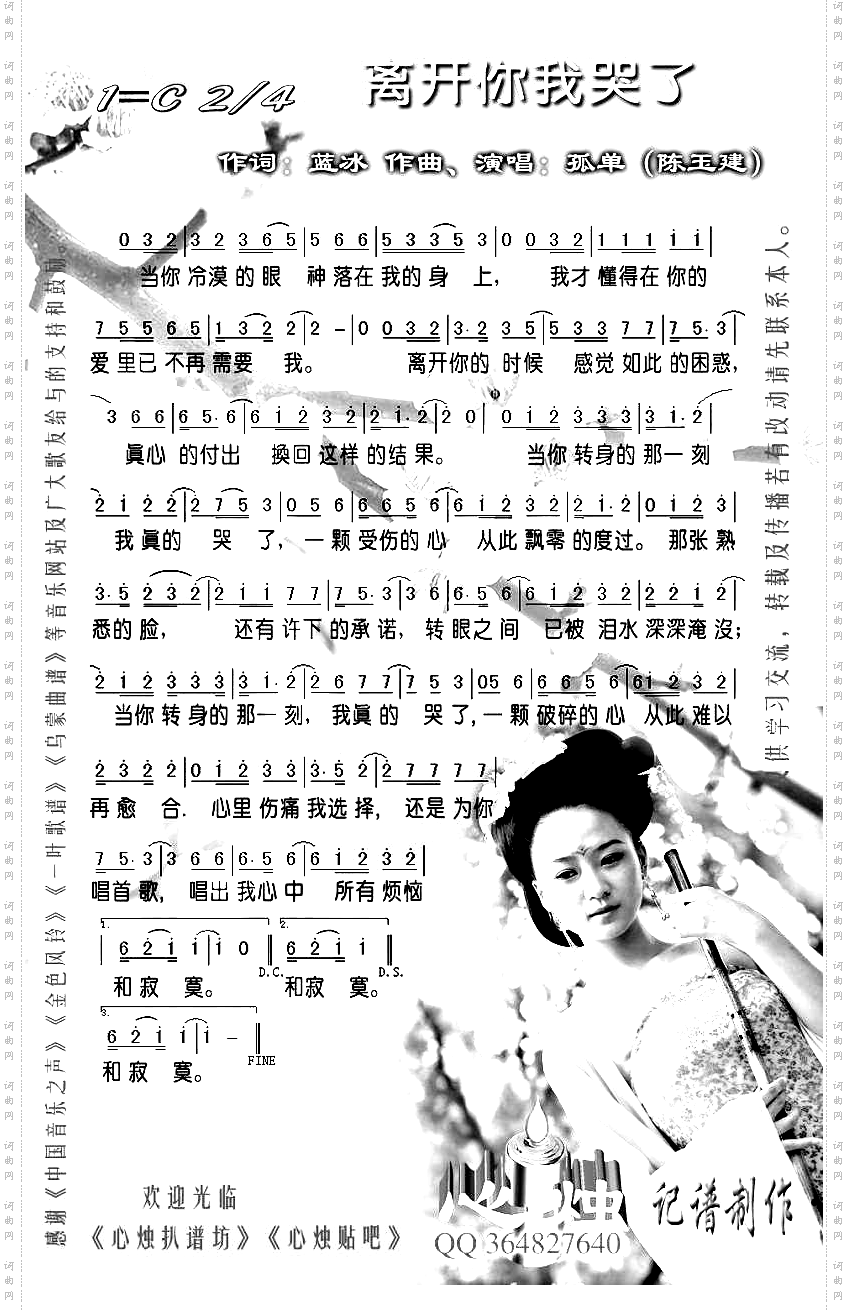 离开你我哭了
1=C 2/4
作词：蓝冰 作曲、演唱：孤单（陈玉建）
0 3 2 | 3 2 3 6 5 | 5 6 6 | 5 3 3 5 3 | 0 0 3 2 | 1 1 1 i i |
当你 冷漠 的 眼 神 落在 我的 身 上， 我才 懂得在 你的
7 5 5 6 5 | 1 3 2 2 | 2 - | 0 0 3 2 | 3· 2 3 5 | 5 3 3 7 7 | 7 5· 3 |
爱 里已 不再 需要 我。 离开你的 时候 感觉 如此 的 困惑，
3 6 6 | 6 5· 6 | 6 i 2 3 2 | 2 i· 2 | 2 0 | 0 i 2 3 3 3 | 3 i· 2 |
真心 的付出 换回 这样 的结果。 当你 转身的 那一刻
2 i 2 2 | 2 7 5 3 | 0 5 6 | 6 6 5 6 | 6 i 2 3 2 | 2 3 2 2 | 0 i 2 |
我 真的 哭 了，一 颗 受伤的 心 从此 飘零 的度过。 那张 熟
3· 5 2 3 2 | 2 i i 7 7 | 7 5· 3 | 3 6 | 6 5· 6 | 6 i 2 3 2 | 2 2 i 2 |
悉的 脸， 还有 许下 的承诺，转眼之间 已被 泪水 深深淹没；
2 i 2 3 3 3 | 3 i· 2 | 2 i 6 7 7 | 7 5 3 | 05 6 | 6 6 5 6 | 6i 2 3 |
当你 转 身的 那一 刻，我真的 哭 了，一 颗 破碎的 心 从此 难以
2 3 2 2 | 0 i 2 3 3 | 3· 5 2 | 2 7 7 7 7 |
再 愈 合. 心里 伤痛 我 选择， 还是 为你
7 5· 3 | 3 6 6 | 6· 5 6 | 6 i 2 3 2 |
唱首 歌， 唱出 我心 中 所有 烦恼
1. 2.
6 2 i i | i 0 | 6 2 i i |
D.C. D.S.
和寂 寞。 和寂 寞。
3.
6 2 i i | i - |
FINE
和寂 寞。
感谢《中国音乐之声》《金色风铃》《一叶歌谱》《乌蒙曲谱》等音乐网站及广大歌友给与的支持和鼓励。
供学习交流，转载及传播若有改动请先联系本人。
欢迎光临
《心烛扒谱坊》《心烛贴吧》
心烛
QQ 364827640
记谱制作
词曲网